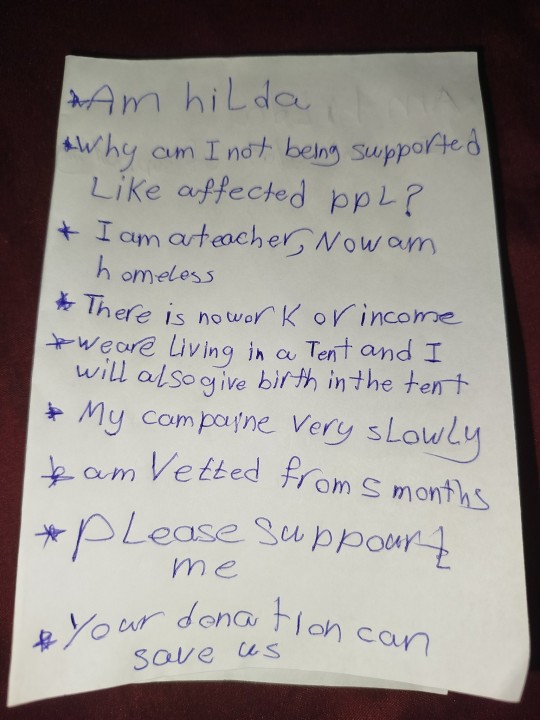 * Am hilda
* Why am I not being supported
Like affected ppL?
* I am a teacher, Now am
homeless
* There is no work or income
* we are Living in a Tent and I
will also give birth in the tent
* My campaine very sLowLy
* am Vetted from 5 months
* pLease suppourt
me
* Your donation can
save us